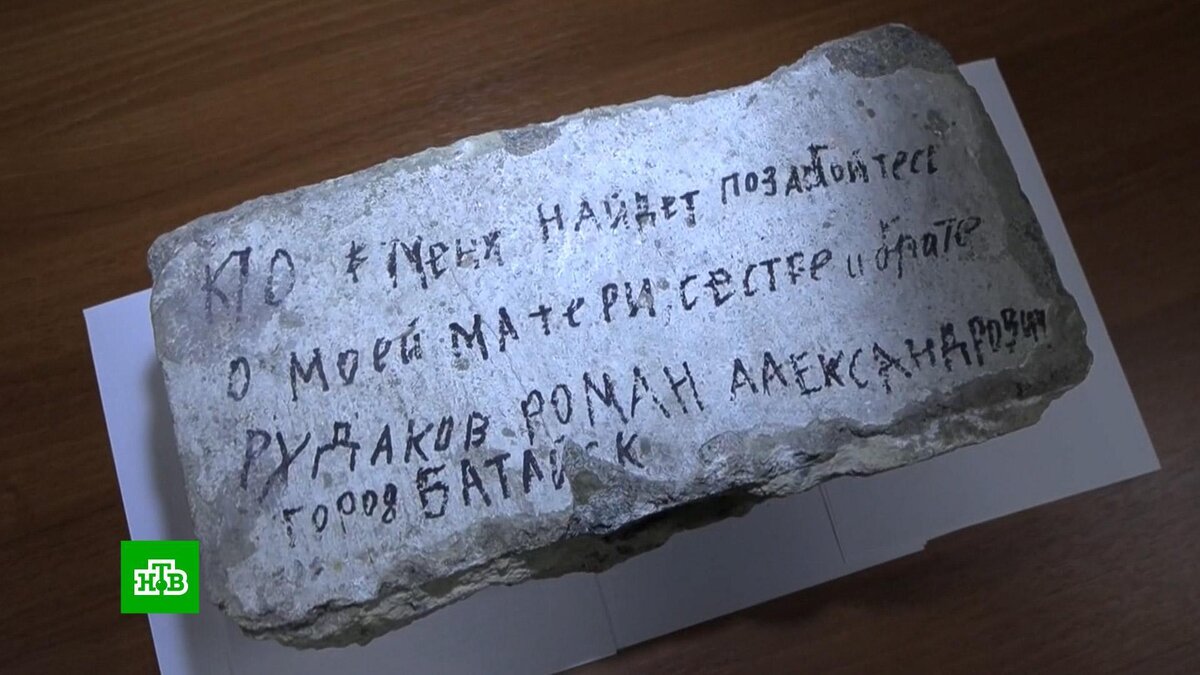 КТО МЕНЯ НАЙДЕТ ПОЗАБОЙТЕСЬ
О МОЕЙ МАТЕРИ, СЕСТРЕ и брате
РУДАКОВ РОМАН АЛЕКСАНДРОВИЧ
город БАТАЙСК
НТВ